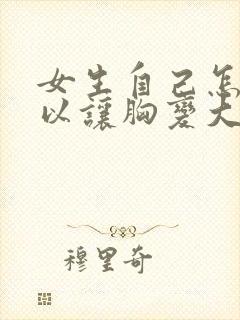 女生自己怎
以讓胸變大
穆里奇